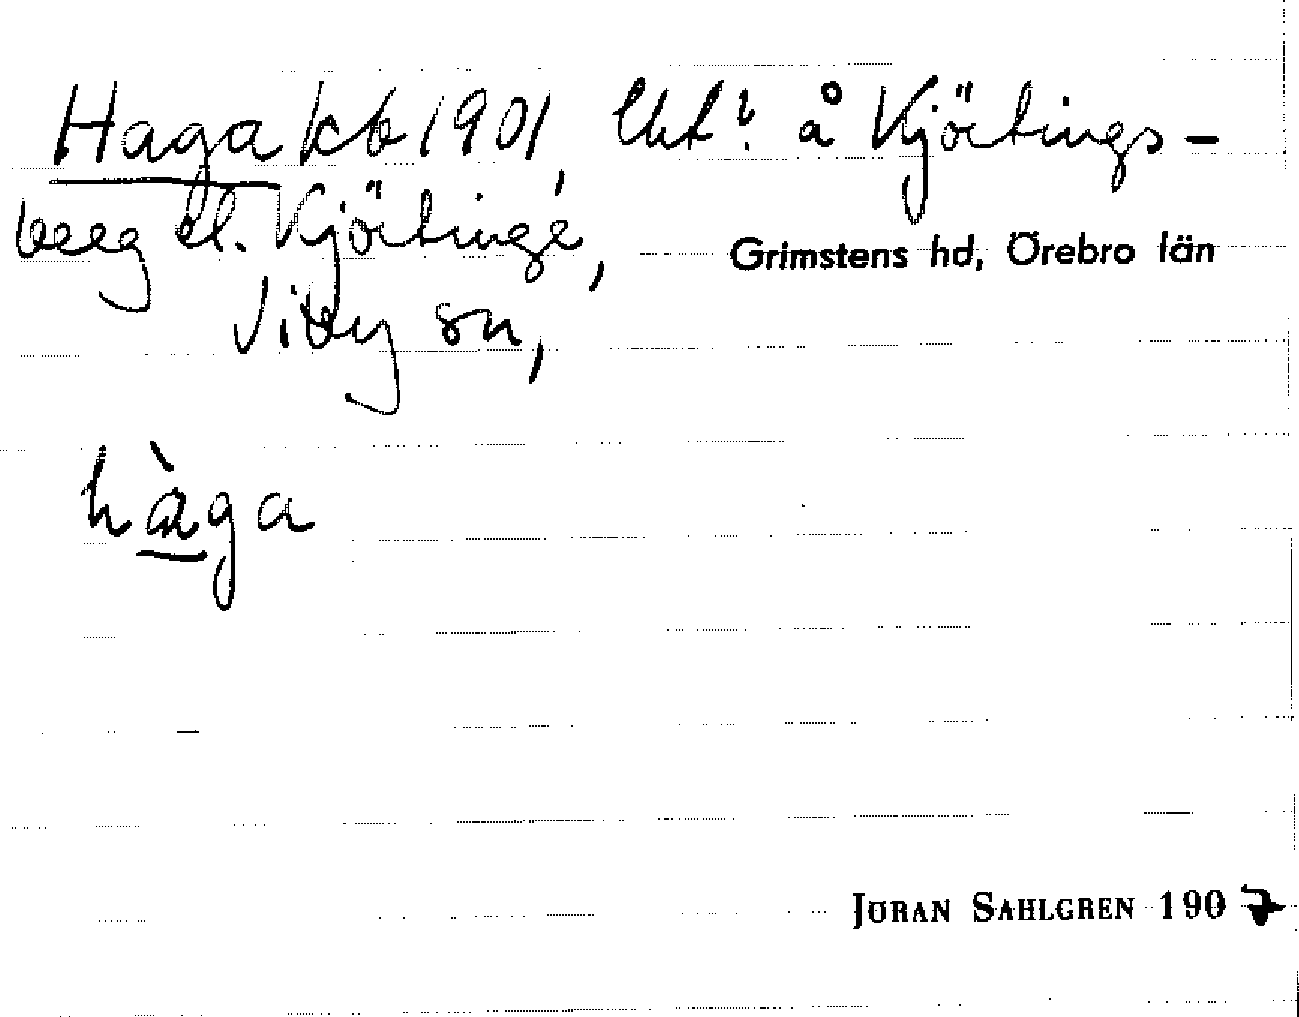 Haga kb 1901, lht? å Kjörtings-
berg el. Kjörtinge,
Grimstens hd, Örebro län
Viby sn,
hàga
JÖRAN SAHLGREN 1907